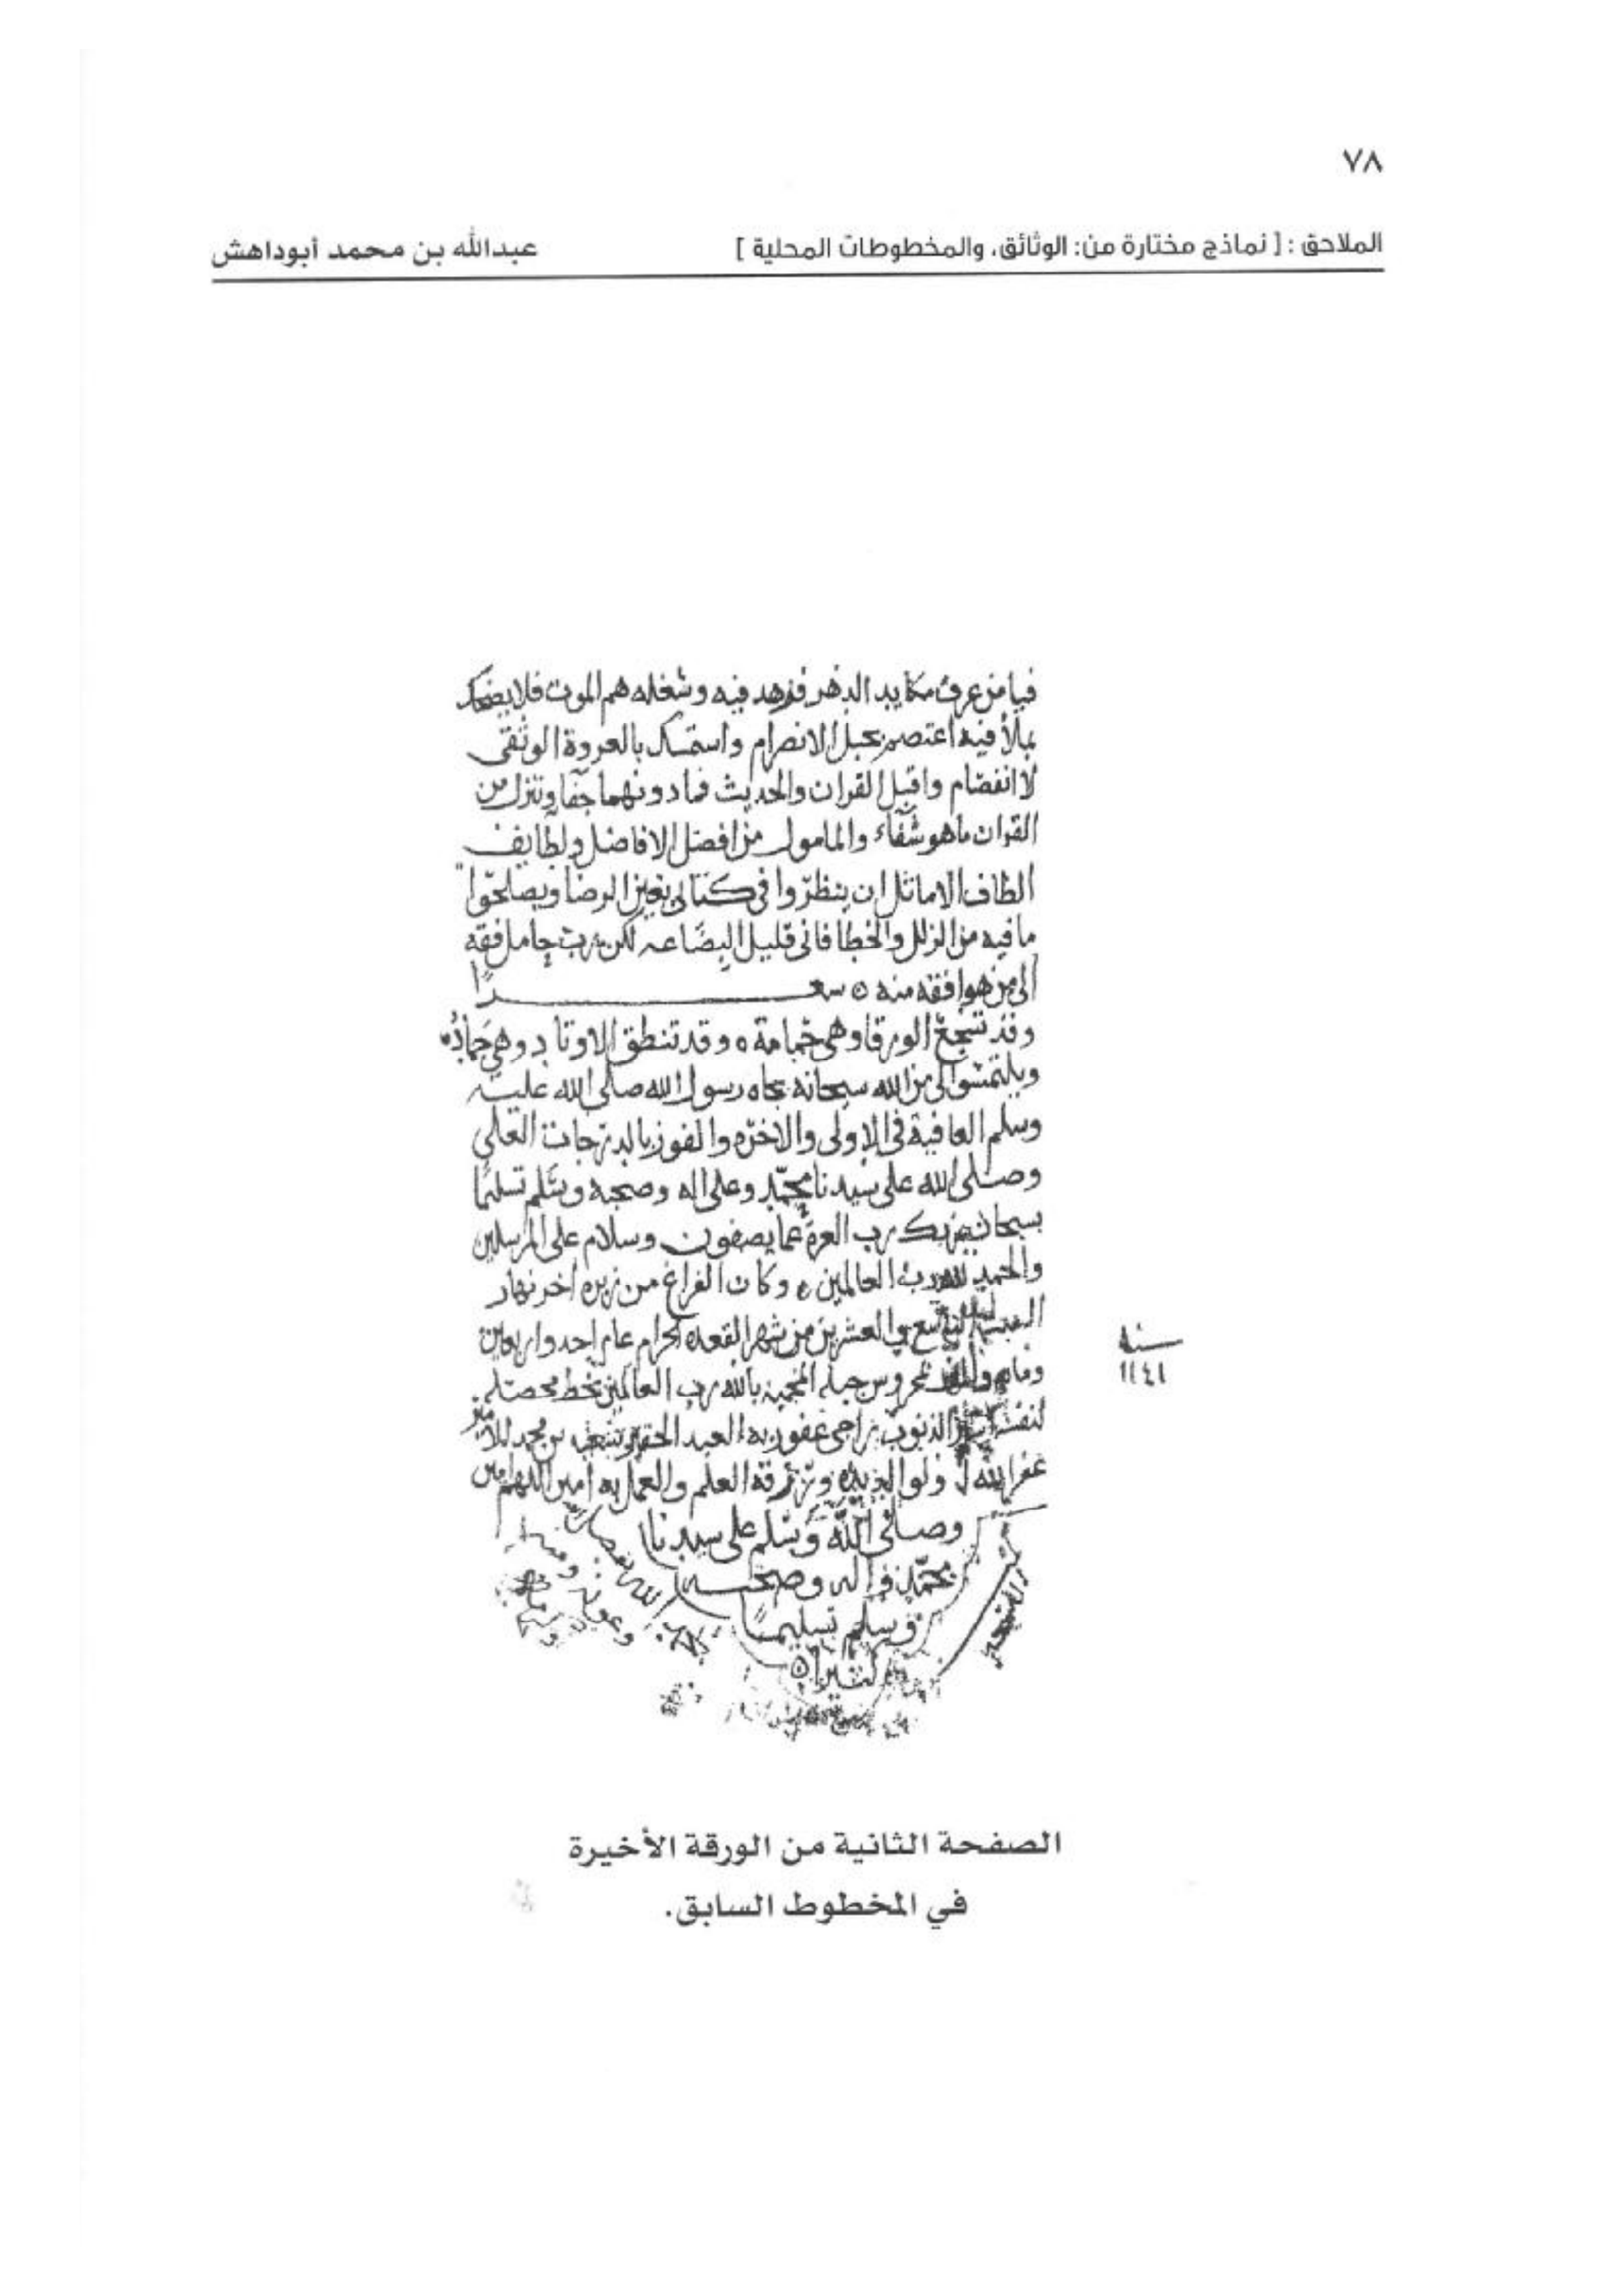 ٧٨
الملاحق : [ نماذج مختارة من: الوثائق، والمخطوطات المحلية ] عبدالله بن محمد أبوداهش
فيا من عرف مكايد الدهر فزهد فيه وشغله هم الموت فلا يضحك
بملأ فيه اعتصم بحبل الانصرام واستمسك بالعروة الوثقى
لا انفصام واقبل القران والحديث فما دونهما جفا وتنزل من
القران ما هو شفاء والمامول من افضل الافاضل ولطايف
الطاف الاماثل ان ينظروا في كتابي بعين الرضا ويصلحوا
ما فيه من الزلل والخطا فاني قليل البضاعه لكن رب حامل فقه
الى من هو افقه منه ه شعرا
وقد تسجع الورقا وهي حمامة ه وقد تنطق الاوتاد وهي جماد ه
ويلتمسوا لي من الله سبحانه بجاه رسول الله صلى الله عليه
وسلم العافية في الاولى والاخره والفوز بالدرجات العلى
وصلى الله على سيدنا محمد وعلى اله وصحبه وسلم تسليما
سبحان ربك رب العزة عما يصفون وسلام على المرسلين
والحمد لله رب العالمين ه وكان الفراغ من زبره اخر نهار
السبت التاسع والعشرين من شهر القعده الحرام عام احد واربعين
سنة
١١٤١
ومايه والف بمحروس جبله المحميه بالله رب العالمين بخط محصله
لنفسه الذنوب راجي عفو ربه العبد الحقير بن محمد
غفر الله له ولوالديه ورزقه العلم والعمل به امين اللهم امين
وصلى الله وسلم على سيدنا
محمد واله وصحبه
وسلم تسليما
كثيرا ه
الصفحة الثانية من الورقة الأخيرة
في المخطوط السابق.